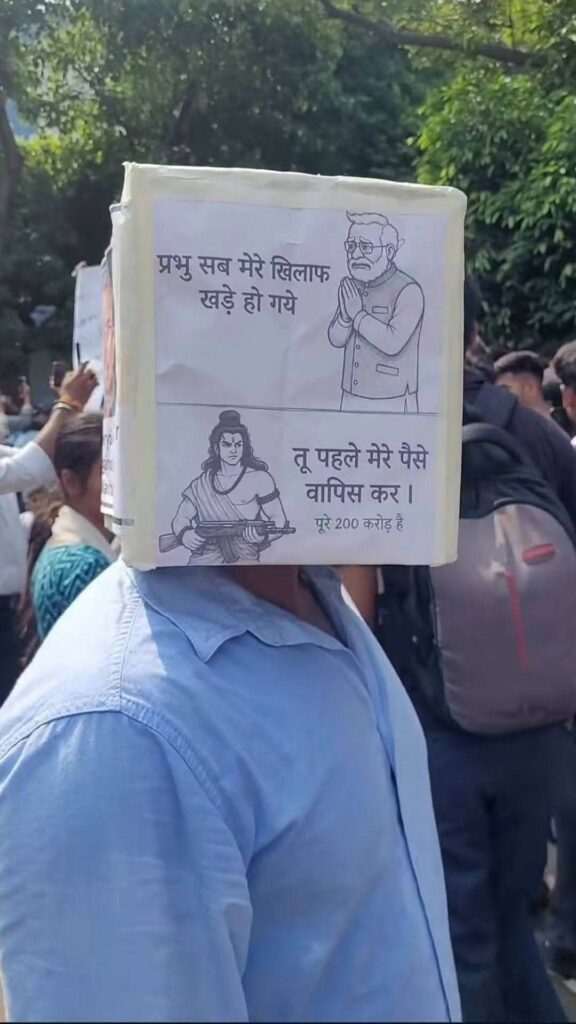 प्रभु सब मेरे खिलाफ
खड़े हो गये
तू पहले मेरे पैसे
वापिस कर ।
पूरे 200 करोड़ है